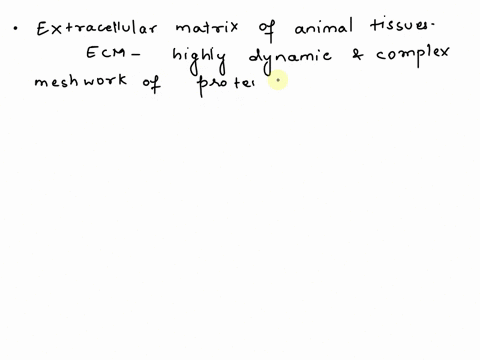 • Extracellular matrix of animal tissues.
ECM - highly dynamic & complex
meshwork of protei